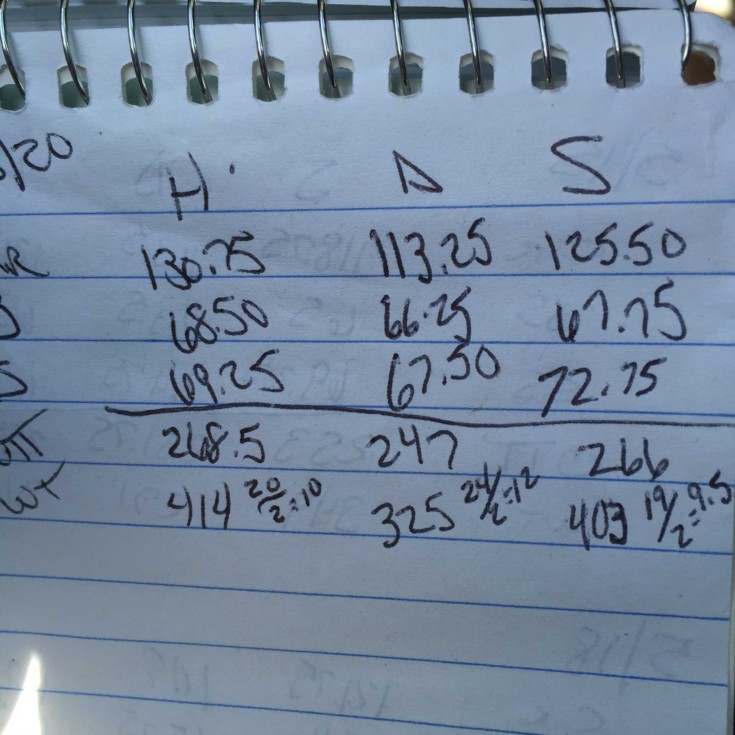 /20 H D S
130.75 113.25 125.50
68.50 66.25 67.75
69.25 67.50 72.75
268.5 247 266
wt 414 20/2=10 325 24/2=12 403 19/2=9.5